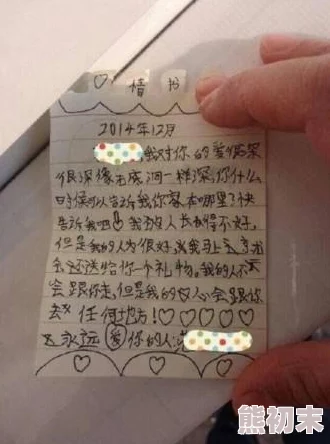 ♡情书
2014年12月
我对你的爱很深
很深像无底洞一样深,你什么
时候可以告诉我你家在哪里?快
告诉我吧!我的人长得不好,
但是我的人为很好,我马上
会还送给你一个礼物,我的人不
会跟你走,但是我的♡心会跟你
去任何地方!♡♡♡♡♡
永远爱你的人:
熊初末